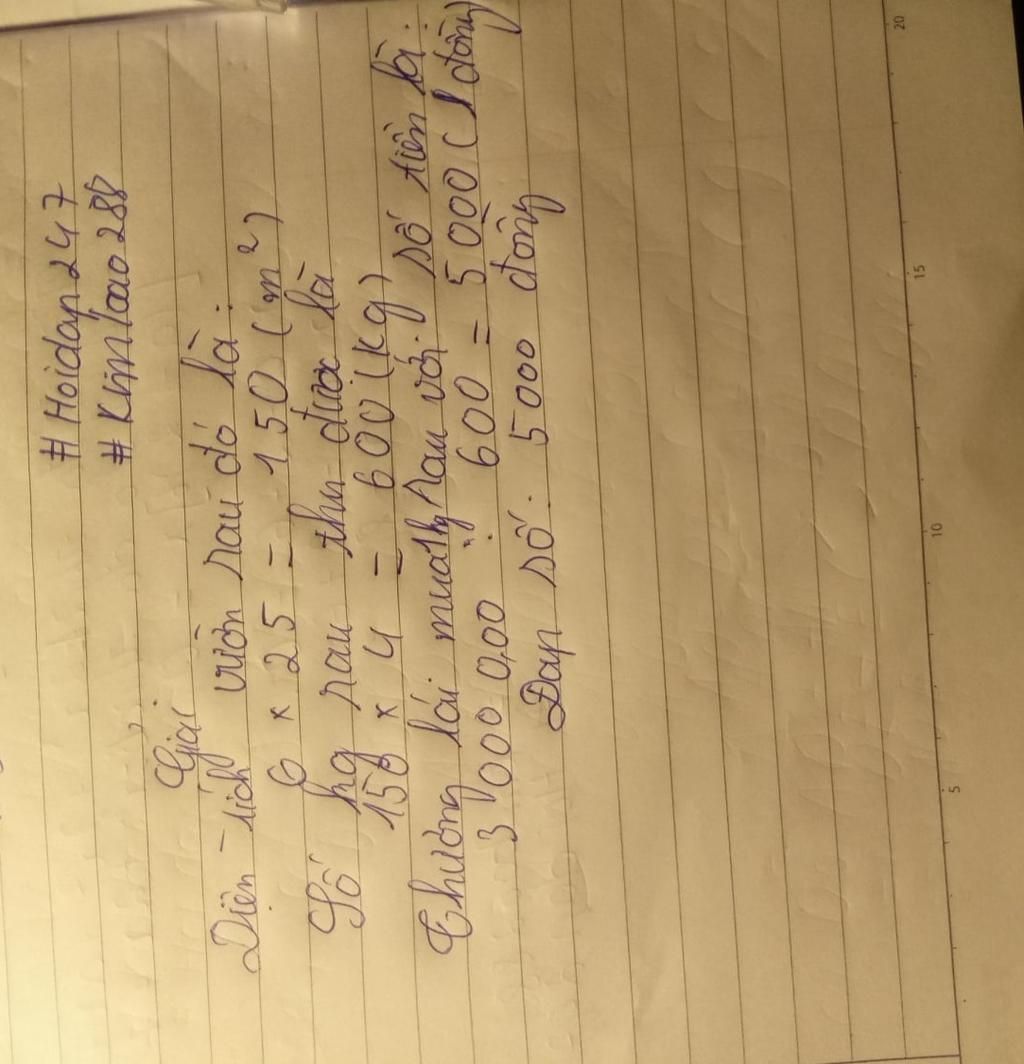 # Hoidap247
# Kimtaao288
Giải
Diện tích vườn rau đó là:
6 × 25 = 150 (m²)
Số kg rau thu được là
150 × 4 = 600 (kg)
Thương lái mua 1kg rau với số tiền là:
3 000 000 : 600 = 5 000 (1 đồng)
Đáp số: 5000 đồng
5
10
15
20